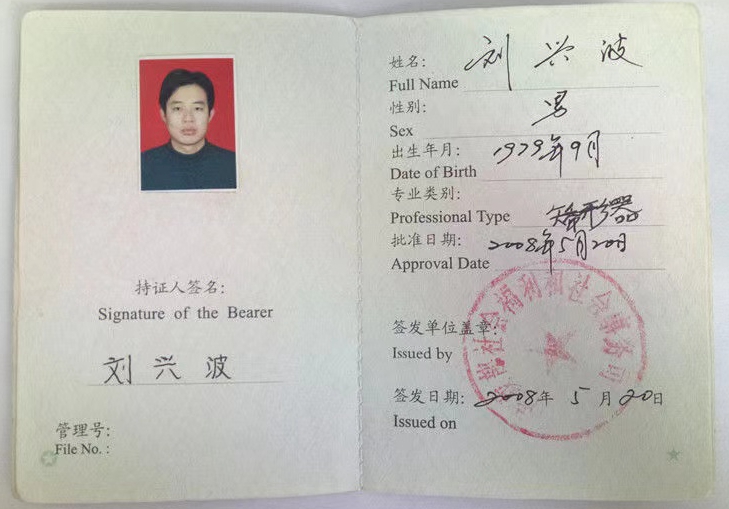 持证人签名:
Signature of the Bearer
刘兴波
管理号:
File No. :
姓名: 刘兴波
Full Name
性别: 男
Sex
出生年月: 1979年9月
Date of Birth
专业类别:
Professional Type 矫形器
批准日期: 2008年5月20日
Approval Date
签发单位盖章:
Issued by
社会福利和社会事务司
签发日期: 2008年 5 月 20日
Issued on